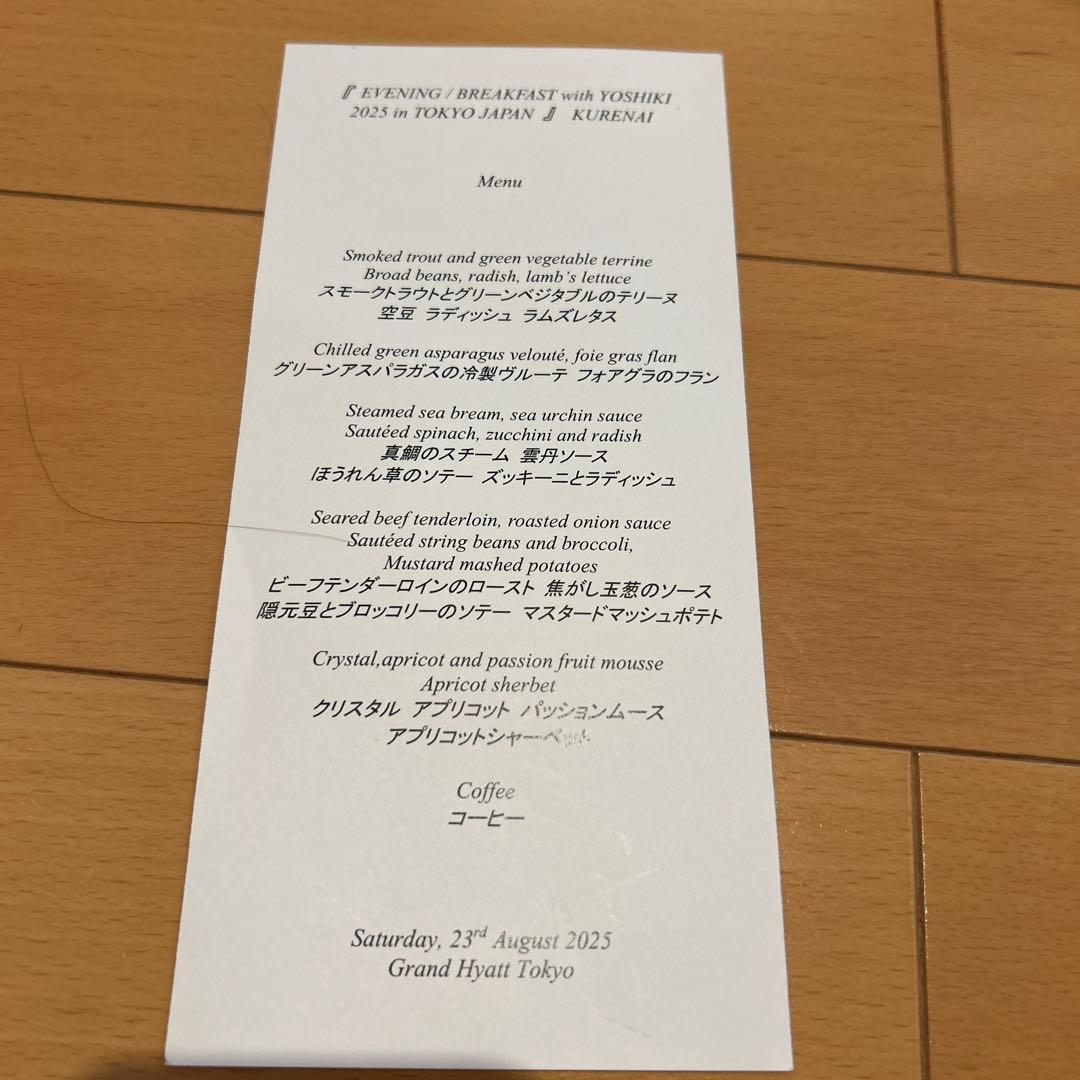 『 EVENING / BREAKFAST with YOSHIKI
2025 in TOKYO JAPAN 』 KURENAI
Menu
Smoked trout and green vegetable terrine
Broad beans, radish, lamb's lettuce
スモークトラウトとグリーンベジタブルのテリーヌ
空豆 ラディッシュ ラムズレタス
Chilled green asparagus velouté, foie gras flan
グリーンアスパラガスの冷製ヴルーテ フォアグラのフラン
Steamed sea bream, sea urchin sauce
Sautéed spinach, zucchini and radish
真鯛のスチーム 雲丹ソース
ほうれん草のソテー ズッキーニとラディッシュ
Seared beef tenderloin, roasted onion sauce
Sautéed string beans and broccoli,
Mustard mashed potatoes
ビーフテンダーロインのロースト 焦がし玉葱のソース
隠元豆とブロッコリーのソテー マスタードマッシュポテト
Crystal,apricot and passion fruit mousse
Apricot sherbet
クリスタル アプリコット パッションムース
アプリコットシャーベット
Coffee
コーヒー
Saturday, 23rd August 2025
Grand Hyatt Tokyo